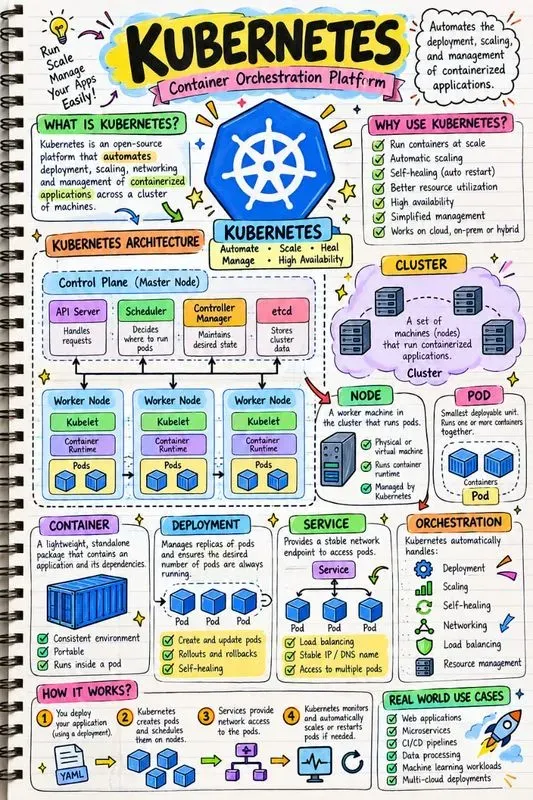 Run
Scale
Manage
Your Apps
Easily!
KUBERNETES
Container Orchestration Platform
Automates the
deployment, scaling,
and management
of containerized
applications.
WHAT IS KUBERNETES?
Kubernetes is an open-source
platform that automates
deployment, scaling, networking
and management of containerized
applications across a cluster
of machines.
KUBERNETES
Automate • Scale • Heal
Manage • High Availability
WHY USE KUBERNETES?
Run containers at scale
Automatic scaling
Self-healing (auto restart)
Better resource utilization
High availability
Simplified management
Works on cloud, on-prem or hybrid
KUBERNETES ARCHITECTURE
Control Plane (Master Node)
API Server
Handles
requests
Scheduler
Decides
where to run
pods
Controller
Manager
Maintains
desired state
etcd
Stores
cluster
data
Worker Node
Kubelet
Container
Runtime
Pods
Worker Node
Kubelet
Container
Runtime
Pods
Worker Node
Kubelet
Container
Runtime
Pods
CLUSTER
A set of
machines (nodes)
that run containerized
applications.
Cluster
NODE
A worker machine in
the cluster that runs pods.
Physical or
virtual machine
Runs container
runtime
Managed by
Kubernetes
POD
Smallest deployable unit.
Runs one or more containers
together.
Containers
Pod
CONTAINER
A lightweight, standalone
package that contains an
application and its dependencies.
Consistent environment
Portable
Runs inside a pod
DEPLOYMENT
Manages replicas of pods
and ensures the desired
number of pods are always
running.
Pod Pod Pod
Create and update pods
Rollouts and rollbacks
Self-healing
SERVICE
Provides a stable network
endpoint to access pods.
Service
Pod Pod Pod
Load balancing
Stable IP / DNS name
Access to multiple pods
ORCHESTRATION
Kubernetes automatically
handles:
Deployment
Scaling
Self-healing
Networking
Load balancing
Resource management
HOW IT WORKS?
1 You deploy
your application
(using a deployment).
YAML
2 Kubernetes
creates pods
and schedules
them on nodes.
3 Services provide
network access
to the pods.
4 Kubernetes monitors
and automatically
scales or restarts
pods if needed.
REAL WORLD USE CASES
Web applications
Microservices
CI/CD pipelines
Data processing
Machine learning workloads
Multi-cloud deployments